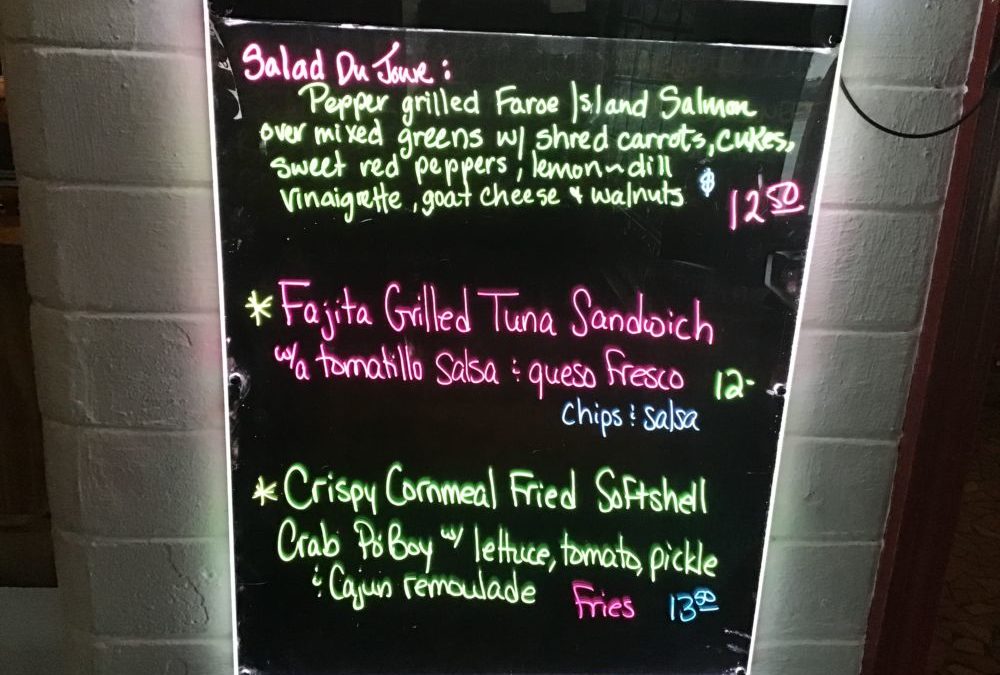 Salad Du Jour:
Pepper grilled Faroe Island Salmon
over mixed greens w/ shred carrots, cukes,
sweet red peppers, lemon~dill
vinaigrette, goat cheese & walnuts $ 12 50
* Fajita Grilled Tuna Sandwich
w/a tomatillo salsa & queso fresco 12-
chips & salsa
* Crispy Cornmeal Fried Softshell
Crab Po'Boy w/ lettuce, tomato, pickle
& Cajun remoulade Fries 13 50